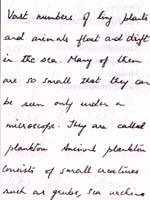 Vast numbers of tiny plants
and animals float and drift
in the sea. Many of them
are so small that they can
be seen only under a
microscope. They are called
plankton Ancient plankton
consists of small creatures
such as grubs, sea urchens